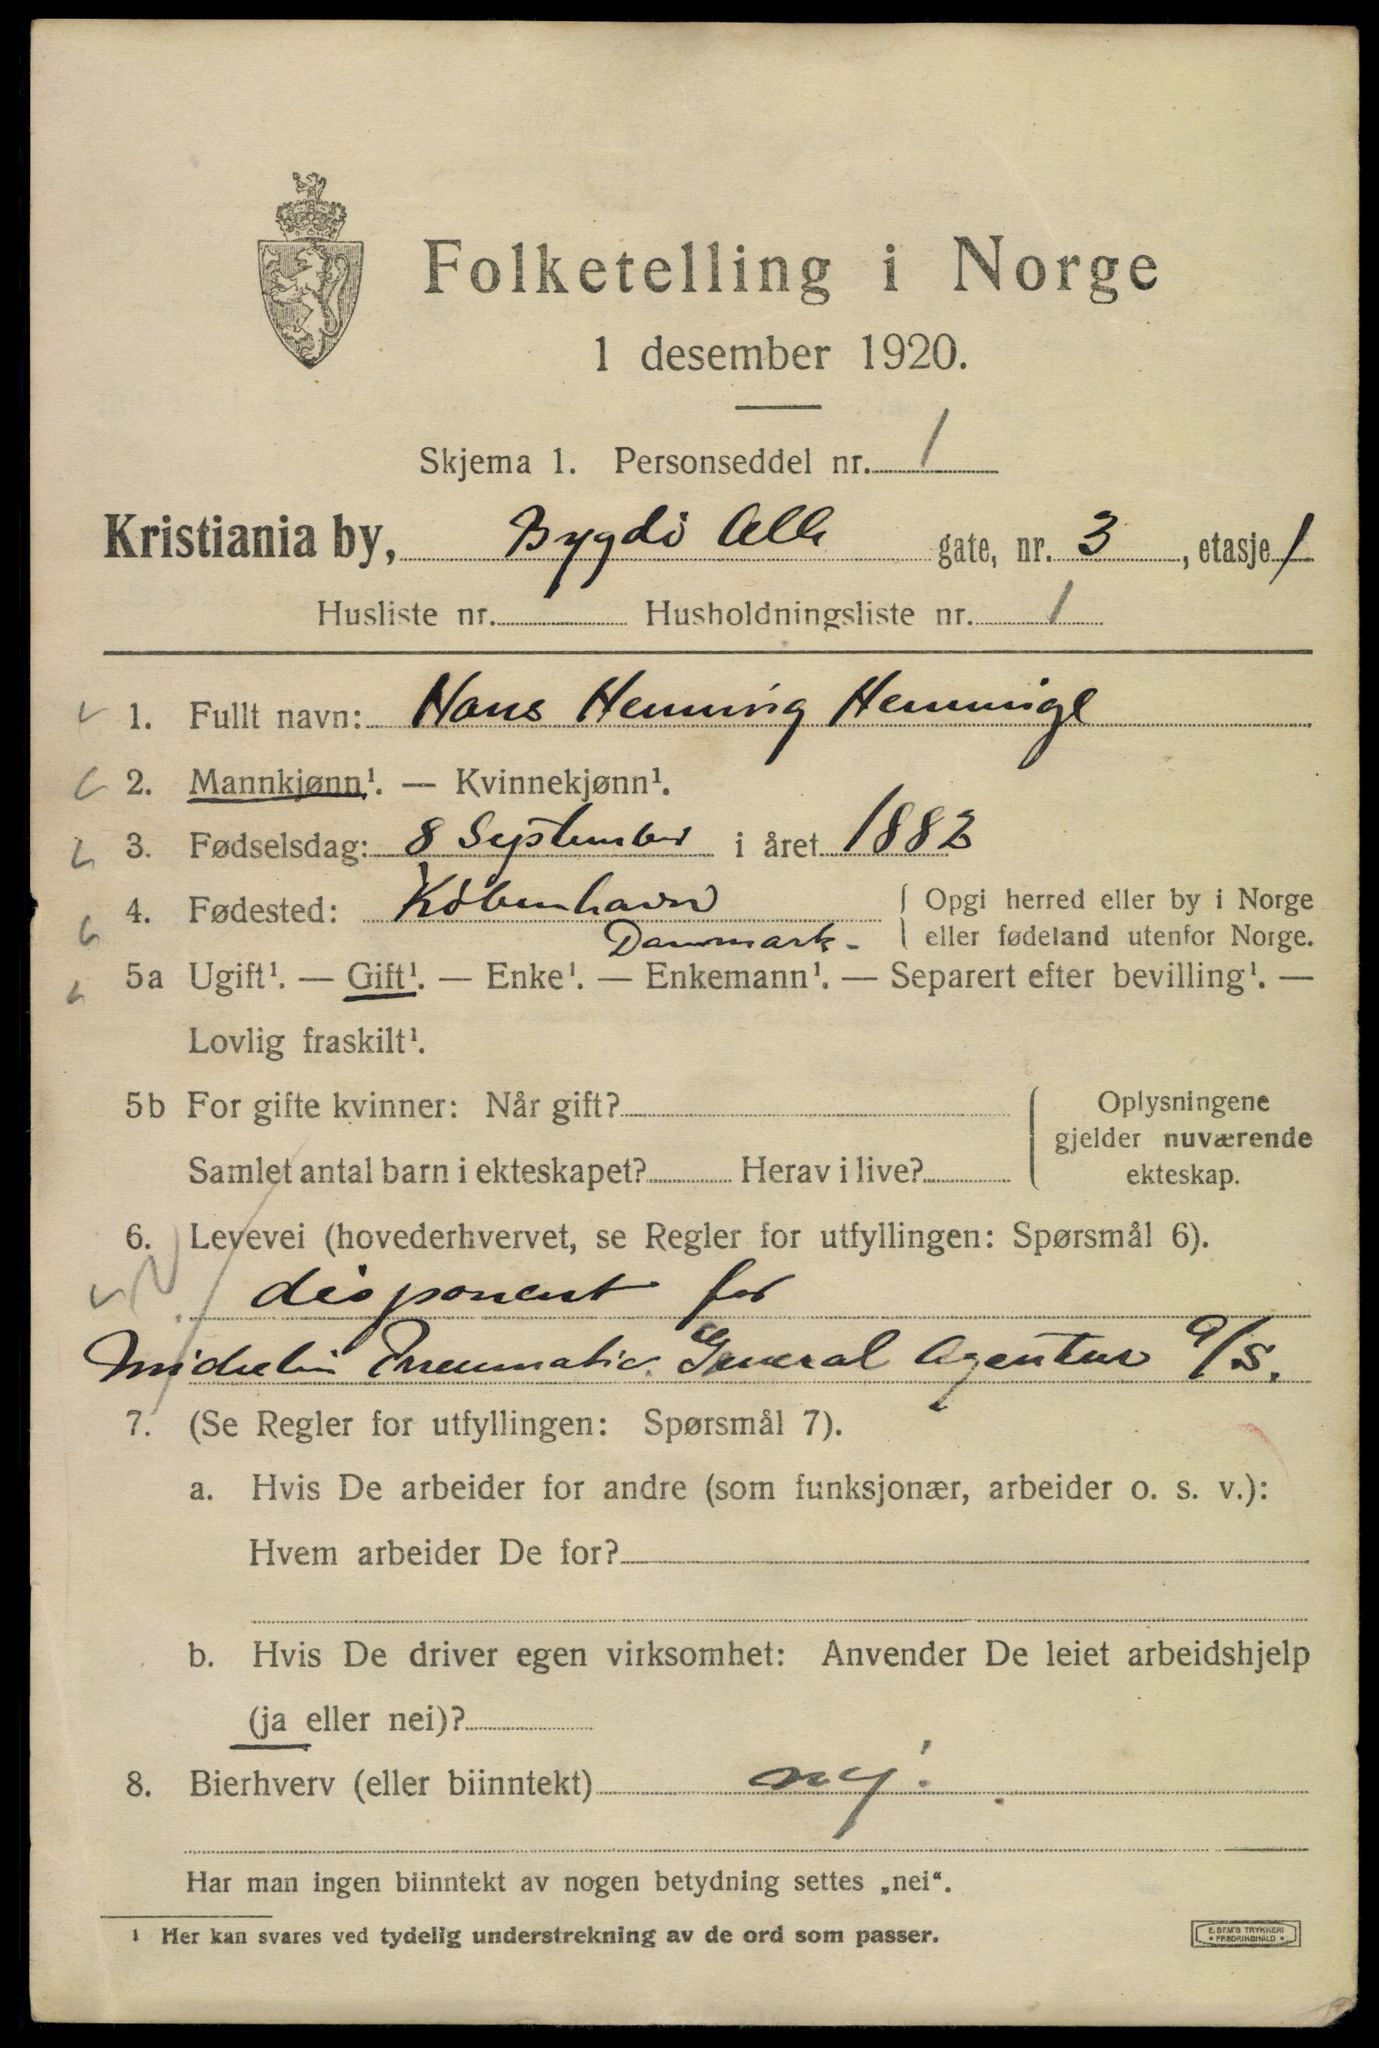 Folketelling i Norge
1 desember 1920.
Skjema 1. Personseddel nr. 1
Kristiania by, Bygdö Alle gate, nr. 3, etasje 1
Husliste nr. Husholdningsliste nr. 1
1. Fullt navn: Hans Henning
2. Mannkjønn¹. — Kvinnekjønn¹.
3. Fødselsdag: 8 September i året 1882
4. Fødested: København Opgi herred eller by i Norge
Danmark. eller fødeland utenfor Norge.
5a Ugift¹. — Gift¹. — Enke¹. — Enkemann¹. — Separert efter bevilling¹. —
Lovlig fraskilt¹.
5b For gifte kvinner: Når gift? Oplysningene
gjelder nuværende
Samlet antal barn i ekteskapet? Herav i live? ekteskap.
6. Levevei (hovederhvervet, se Regler for utfyllingen: Spørsmål 6).
disponent for
Michelin Pneumatic General Agentur A/S.
7. (Se Regler for utfyllingen: Spørsmål 7).
a. Hvis De arbeider for andre (som funksjonær, arbeider o. s. v.):
Hvem arbeider De for?
b. Hvis De driver egen virksomhet: Anvender De leiet arbeidshjelp
(ja eller nei)?
8. Bierhverv (eller biinntekt) nej.
Har man ingen biinntekt av nogen betydning settes „nei“.
¹ Her kan svares ved tydelig understrekning av de ord som passer.
E. SEM'S TRYKKERI
* FREDRIKSHALD *